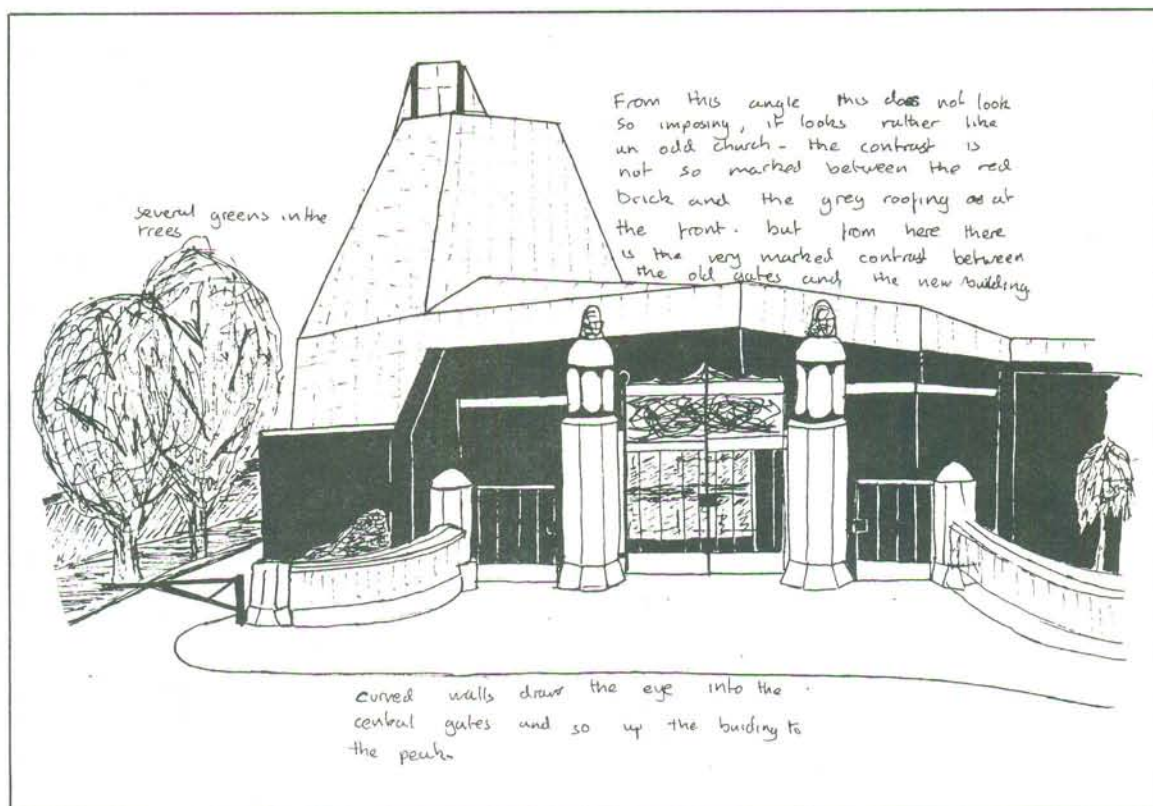 From this angle this does not look
so imposing, it looks rather like
an odd church - the contrast is
not so marked between the red
brick and the grey roofing as at
the front. but from here there
is the very marked contrast between
the old gates and the new building
several greens in the
trees
curved walls draw the eye into the
central gates and so up the buiding to
the peak.